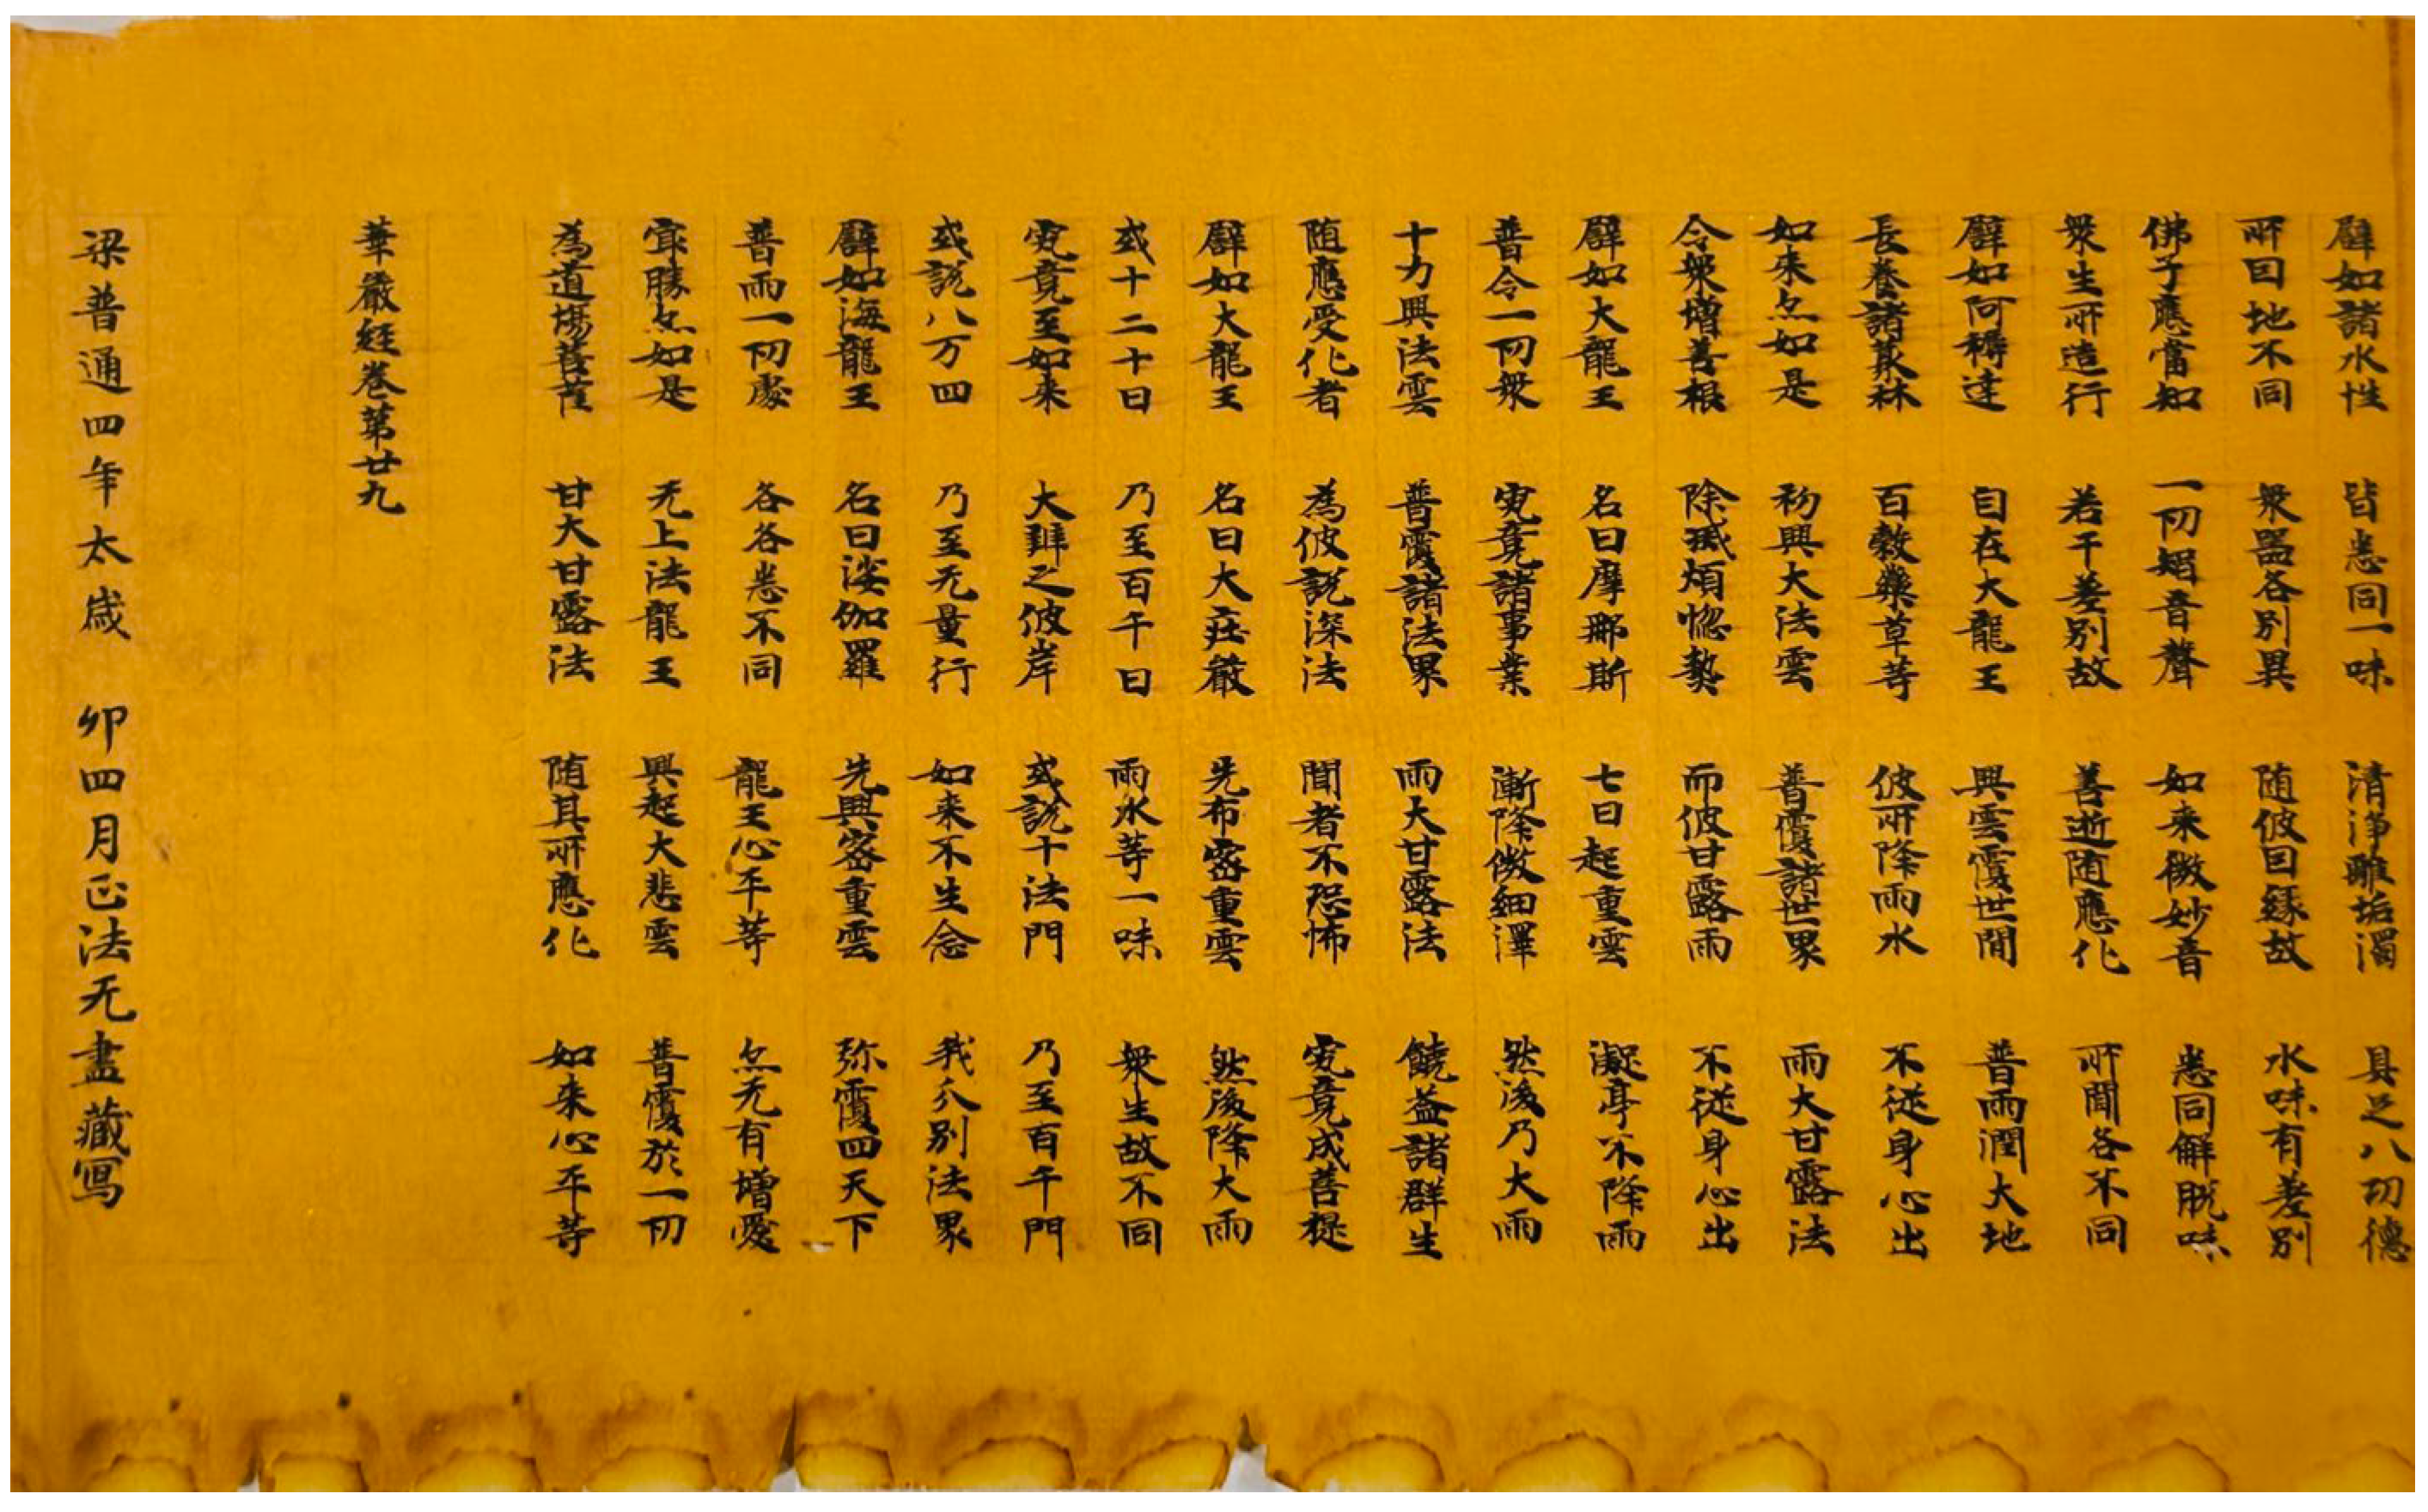 辟如諸水性 皆悉同一味 清淨離垢濁 具足八功德
所因地不同 衆器各別異 随彼因緣故 水味有差別
佛子應當知 一切媱音聲 如来微妙音 悉同解脱味
衆生所造行 若干差別故 善逝随應化 所聞各不同
辟如阿耨達 自在大龍王 興雲覆世間 普雨潤大地
長養諸藂林 百穀藥草等 彼所降雨水 不從身心出
如来亦如是 初興大法雲 普覆諸世界 雨大甘露法
令衆增善根 除滅煩惚熱 而彼甘露雨 不從身心出
辟如大龍王 名曰摩那斯 七日起重雲 凝亭不降雨
普令一切衆 究竟諸事業 漸降微細澤 然後乃大雨
十力興法雲 普覆諸法界 雨大甘露法 饒益諸群生
随應受化者 為彼說深法 聞者不恐怖 究竟成菩提
辟如大龍王 名曰大莊嚴 先布密重雲 然後降大雨
或十二十日 乃至百千日 雨水等一味 衆生故不同
究竟至如来 大辯之彼岸 或說十法門 乃至百千門
或說八万四 乃至无量行 如来不生念 我分別法界
辟如海龍王 名曰娑伽羅 先興密重雲 弥覆四天下
普雨一切處 各各悉不同 龍王心平等 亦无有增愛
㝡勝亦如是 无上法龍王 興起大悲雲 普覆於一切
為道場菩薩 甘大甘露法 随其所應化 如来心平等
華嚴経卷第廿九
梁普通四年太歲 卯四月正法无盡藏寫